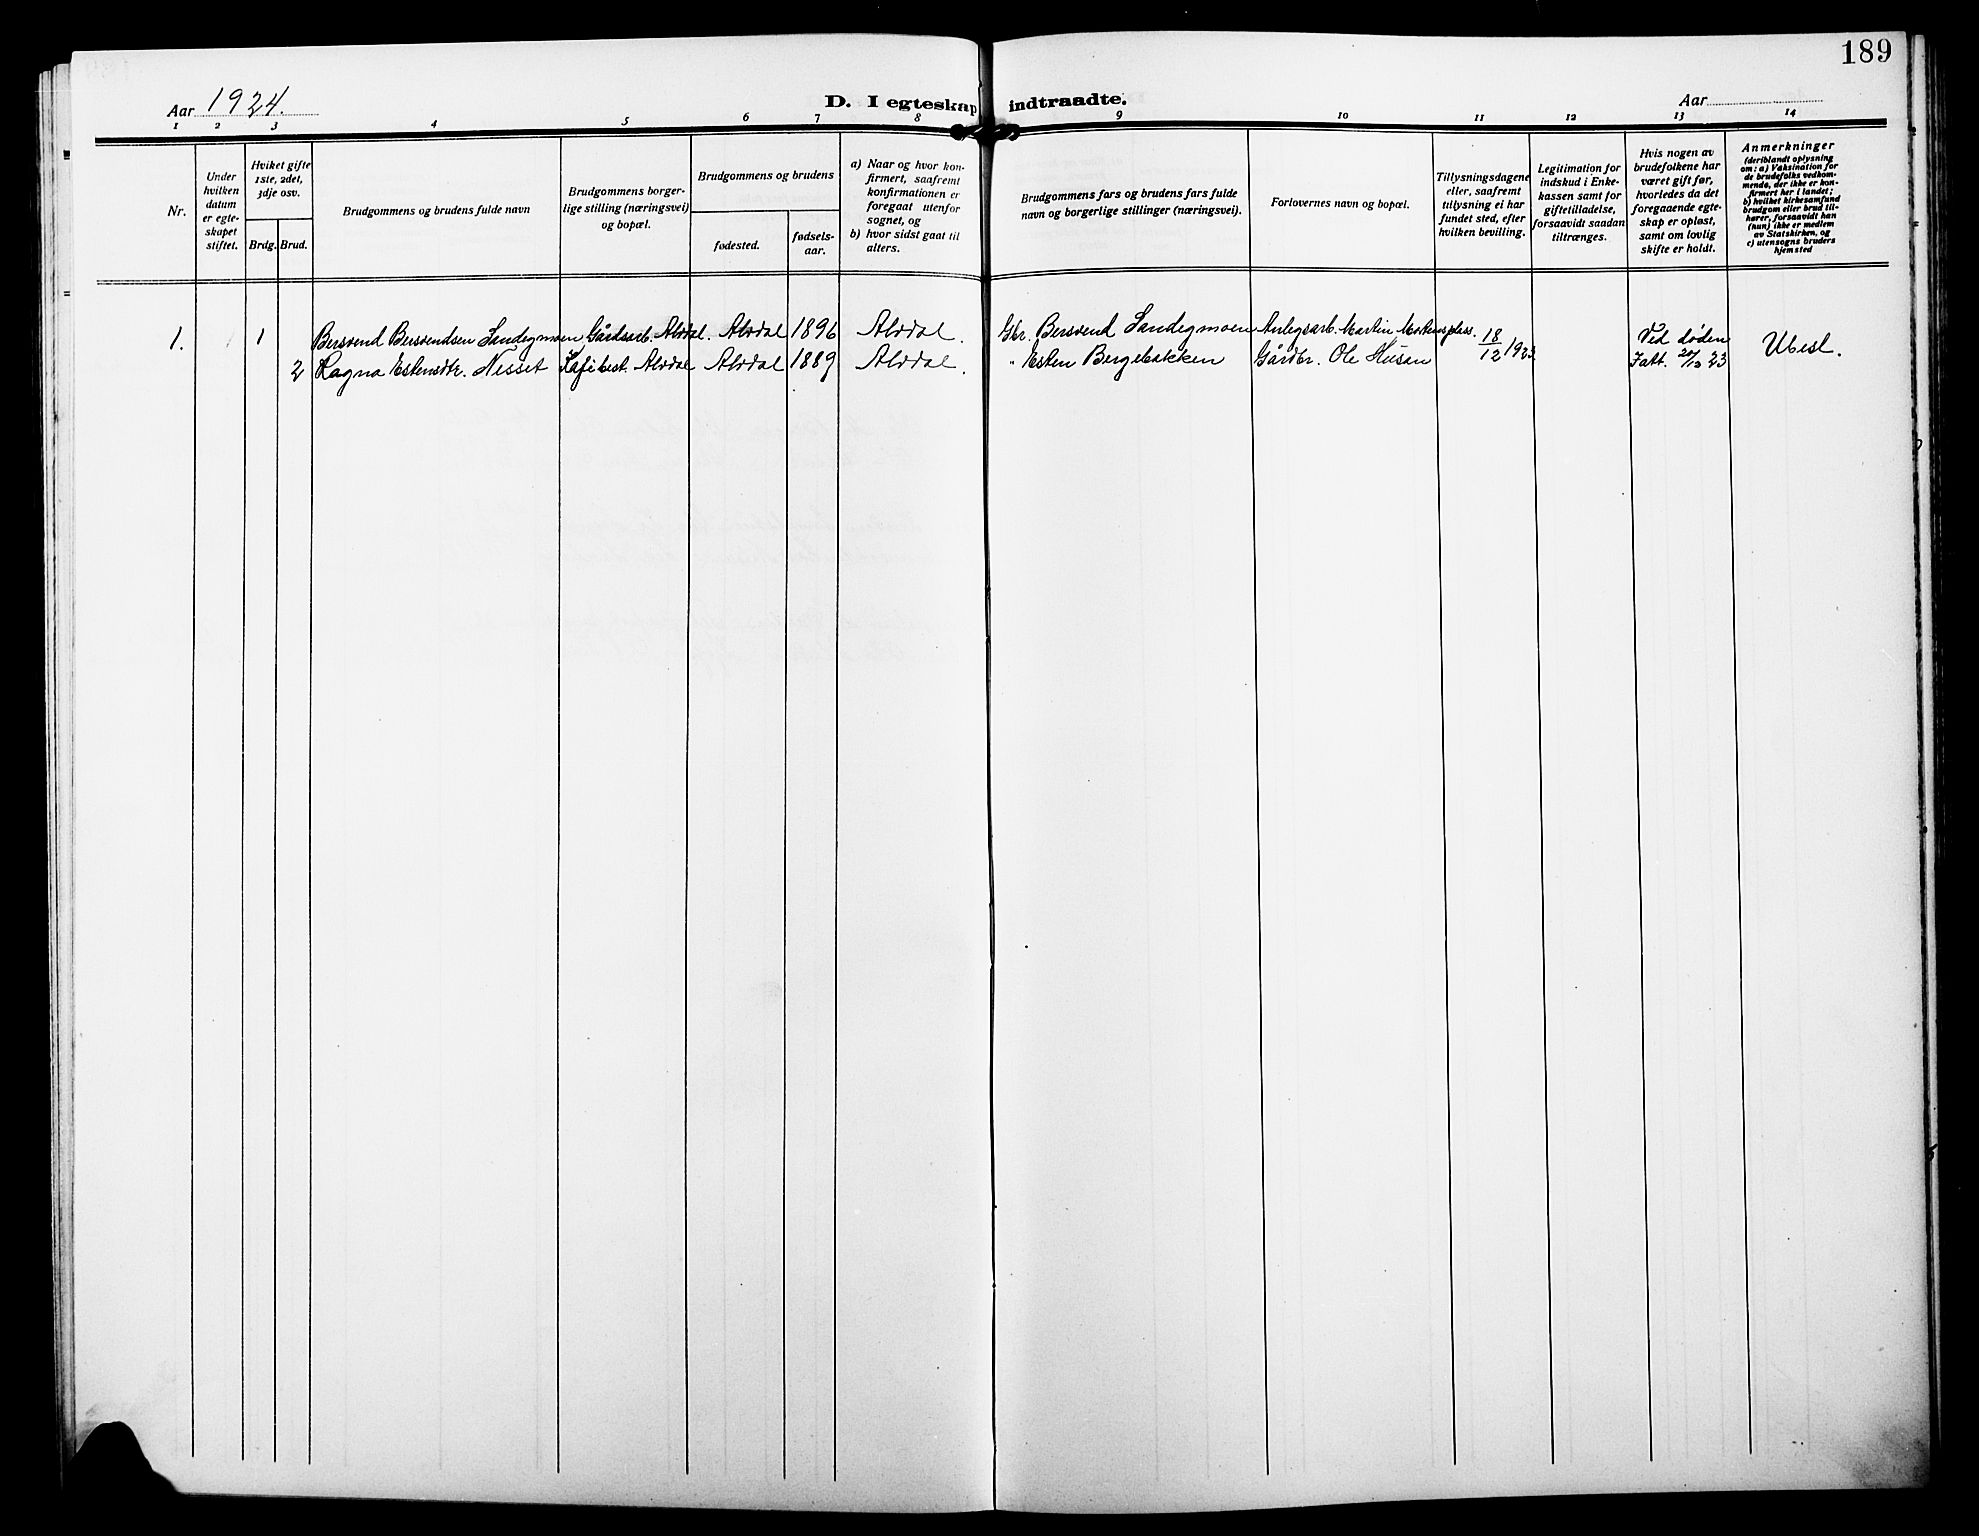 189
Aar 1924.
D. I egteskap indtraadte.
Aar
1 2 3 4 5 6 7 8 9 10 11 12 13 14
Nr.
Under
hvilken
datum
er egte-
skapet
stiftet.
Hviket gifte
1ste, 2det,
3dje osv.
Brdg. Brud.
Brudgommens og brudens fulde navn
Brudgommens borger-
lige stilling (næringsvei)
og bopæl.
Brudgommens og brudens
fødested.
fødsels-
aar.
a) Naar og hvor kon-
firmert, saafremt
konfirmationen er
foregaat utenfor
sognet, og
b) hvor sidst gaat til
alters.
Brudgommens fars og brudens fars fulde
navn og borgerlige stillinger (næringsvei).
Forlovernes navn og bopæl.
Tillysningsdagene
eller, saafremt
tillysning ei har
fundet sted, efter
hvilken bevilling.
Legitimation for
indskud i Enke-
kassen samt for
giftetilladelse,
forsaavidt saadan
tiltrænges.
Hvis nogen av
brudefolkene har
været gift før,
hvorledes da det
foregaaende egte-
skap er opløst,
samt om lovlig
skifte er holdt.
Anmerkninger
(deriblandt oplysning
om: a) Vaksination for
de brudefolks vedkom-
mende, der ikke er kon-
firmert her i landet;
b) hvilket kirkesamfund
brudgom eller brud til-
hører, forsaavidt han
(hun) ikke er medlem
av Statskirken, og
c) utensogns bruders
hjemsted
1. 1 Bersvend Bersvendsen Sandegmoen Gårdsarb. Alvdal. Alvdal 1896 Alvdal. Gbr. Bersvend Sandegmoen Anlegsarb. Martin Mortensplass. 18/12 1923 Ved døden Ubesl.
2 Ragna Estensdtr. Nesset Kafébest. Alvdal Alvdal 1889 Alvdal. " Esten Bergebakken Gårdbr. Ole Husan 23